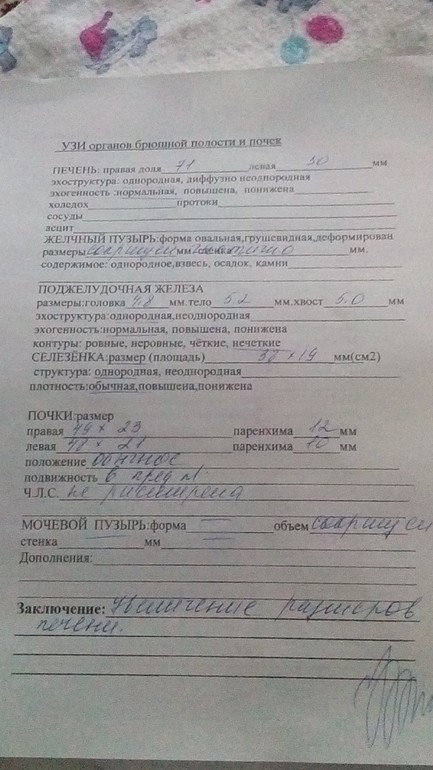 УЗИ органов брюшной полости и почек
ПЕЧЕНЬ: правая доля 71 левая 30 мм
эхоструктура: однородная, диффузно неоднородная
эхогенность :нормальная, повышена, понижена
холедох протоки
сосуды
асцит
ЖЕЛЧНЫЙ ПУЗЫРЬ:форма овальная,грушевидная,деформирован
размеры сокращен мм частично мм.
содержимое: однородное,взвесь, осадок, камни
ПОДЖЕЛУДОЧНАЯ ЖЕЛЕЗА
размеры:головка 4.8 мм.тело 5.2 мм.хвост 5.0 мм
эхоструктура:однородная,неоднородная
эхогенность:нормальная, повышена, понижена
контуры: ровные, неровные, чёткие, нечеткие
СЕЛЕЗЁНКА:размер (площадь) 38 × 19 мм(см2)
структура: однородная, неоднородная
плотность:обычная,повышена,понижена
ПОЧКИ:размер
правая 49 × 23 паренхима 12 мм
левая 48 × 21 паренхима 10 мм
положение обычное
подвижность в пред N.
Ч.Л.С. не расширена
МОЧЕВОЙ ПУЗЫРЬ:форма — объем сокращен
стенка — мм —
Дополнения:
Заключение: Увеличение размеров
печени.